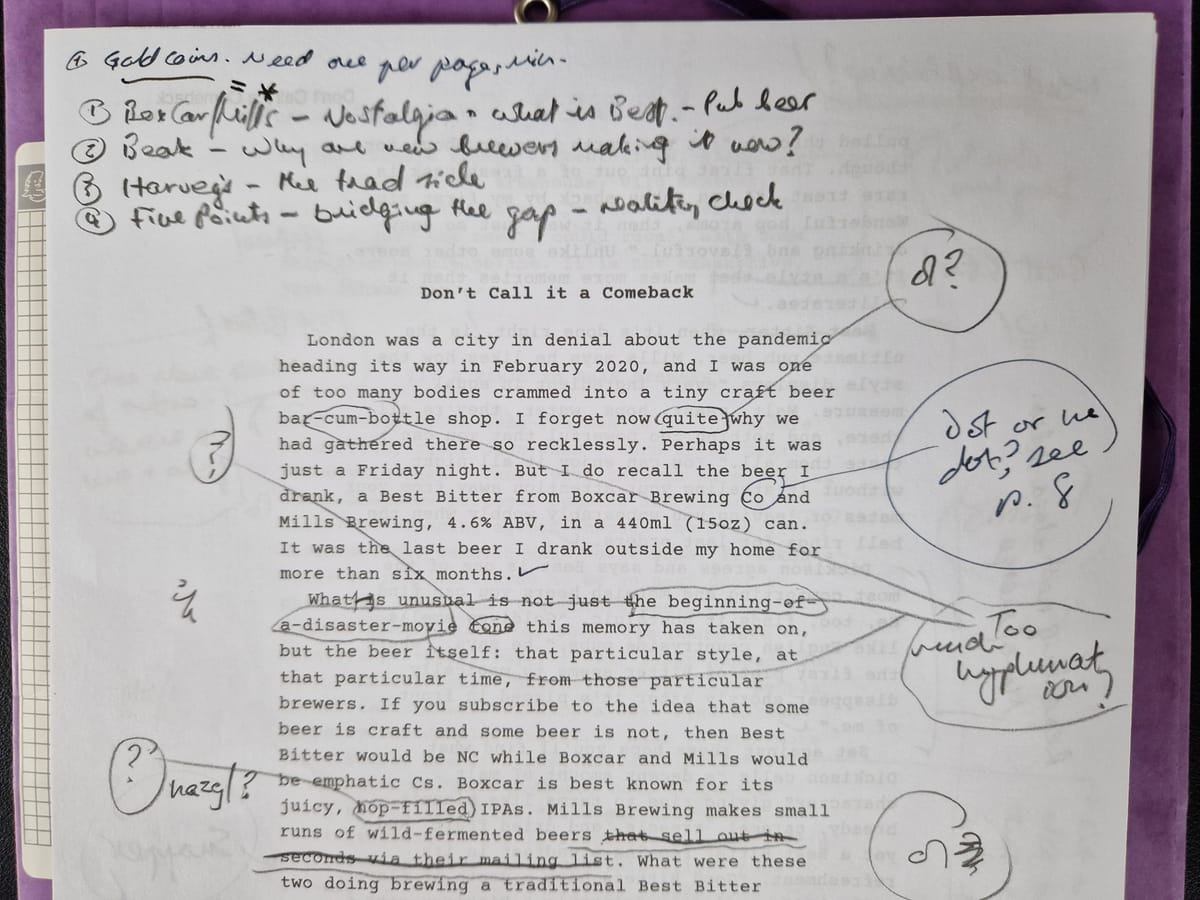 Gold coins. Need one per page, min.
① BoxCar/Mills * – Nostalgia – what is Best. – Pub beer
② Beak – Why are new brewers making it now?
③ Harvey's – the trad side
④ Five Points – bridging the gap – reality check
?
Don't Call it a Comeback
London was a city in denial about the pandemic
heading its way in February 2020, and I was one
of too many bodies crammed into a tiny craft beer
bar-cum-bottle shop. I forget now quite why we
had gathered there so recklessly. Perhaps it was
just a Friday night. But I do recall the beer I
drank, a Best Bitter from Boxcar Brewing Co and
Mills Brewing, 4.6% ABV, in a 440ml (15oz) can.
It was the last beer I drank outside my home for
more than six months.
Dot or no
dot? see
p. 8
?
What is unusual is not just the beginning-of-
a-disaster-movie tone this memory has taken on,
but the beer itself: that particular style, at
that particular time, from those particular
brewers. If you subscribe to the idea that some
beer is craft and some beer is not, then Best
Bitter would be NC while Boxcar and Mills would
be emphatic Cs. Boxcar is best known for its
juicy, hop-filled IPAs. Mills Brewing makes small
runs of wild-fermented beers that sell out in
seconds via their mailing list. What were these
two doing brewing a traditional Best Bitter
Too
much
hyphenat
ion?
?
hazy?